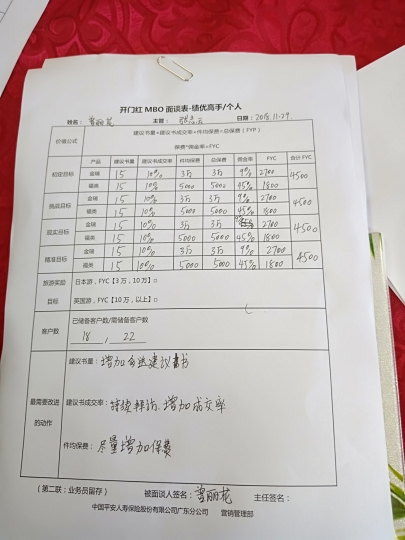 开门红 MBO 面谈表-绩优高手/个人
姓名： 曹丽花 主管： 日期： 2018.11.29.
价值公式
建议书量×建议书成交率×件均保费=总保费（FYP）
保费*佣金率=FYC
产品 建议书量 建议书成交率 件均保费 总保费 佣金率 FYC 合计 FYC
初定目标 金瑞 15 10% 3万 3万 9% 2700 4500
福类 15 10% 5000 5000 45% 1800
挑战目标 金瑞 15 10% 3万 3万 9% 2700 4500
福类 15 10% 5000 5000 45% 1800
现实目标 金瑞 15 10% 3万 3万 2700 4500
福类 15 10% 5000 5000 45% 1800
精准目标 金瑞 15 10% 3万 3万 9% 2700 4500
福类 15 10% 5000 5000 45% 1800
旅游奖励目标
日本游，FYC【3万，10万】□
英国游，FYC【10万，以上】□
客户数
已储备客户数/需储备客户数
18 ， 22
最需要改进的动作
建议书量：增加 建议书
建议书成交率：持续拜访，增加成交率
件均保费：尽量增加保费
（第二联：业务员留存） 被面谈人签名：曹丽花 主任签名：
中国平安人寿保险股份有限公司广东分公司 营销管理部